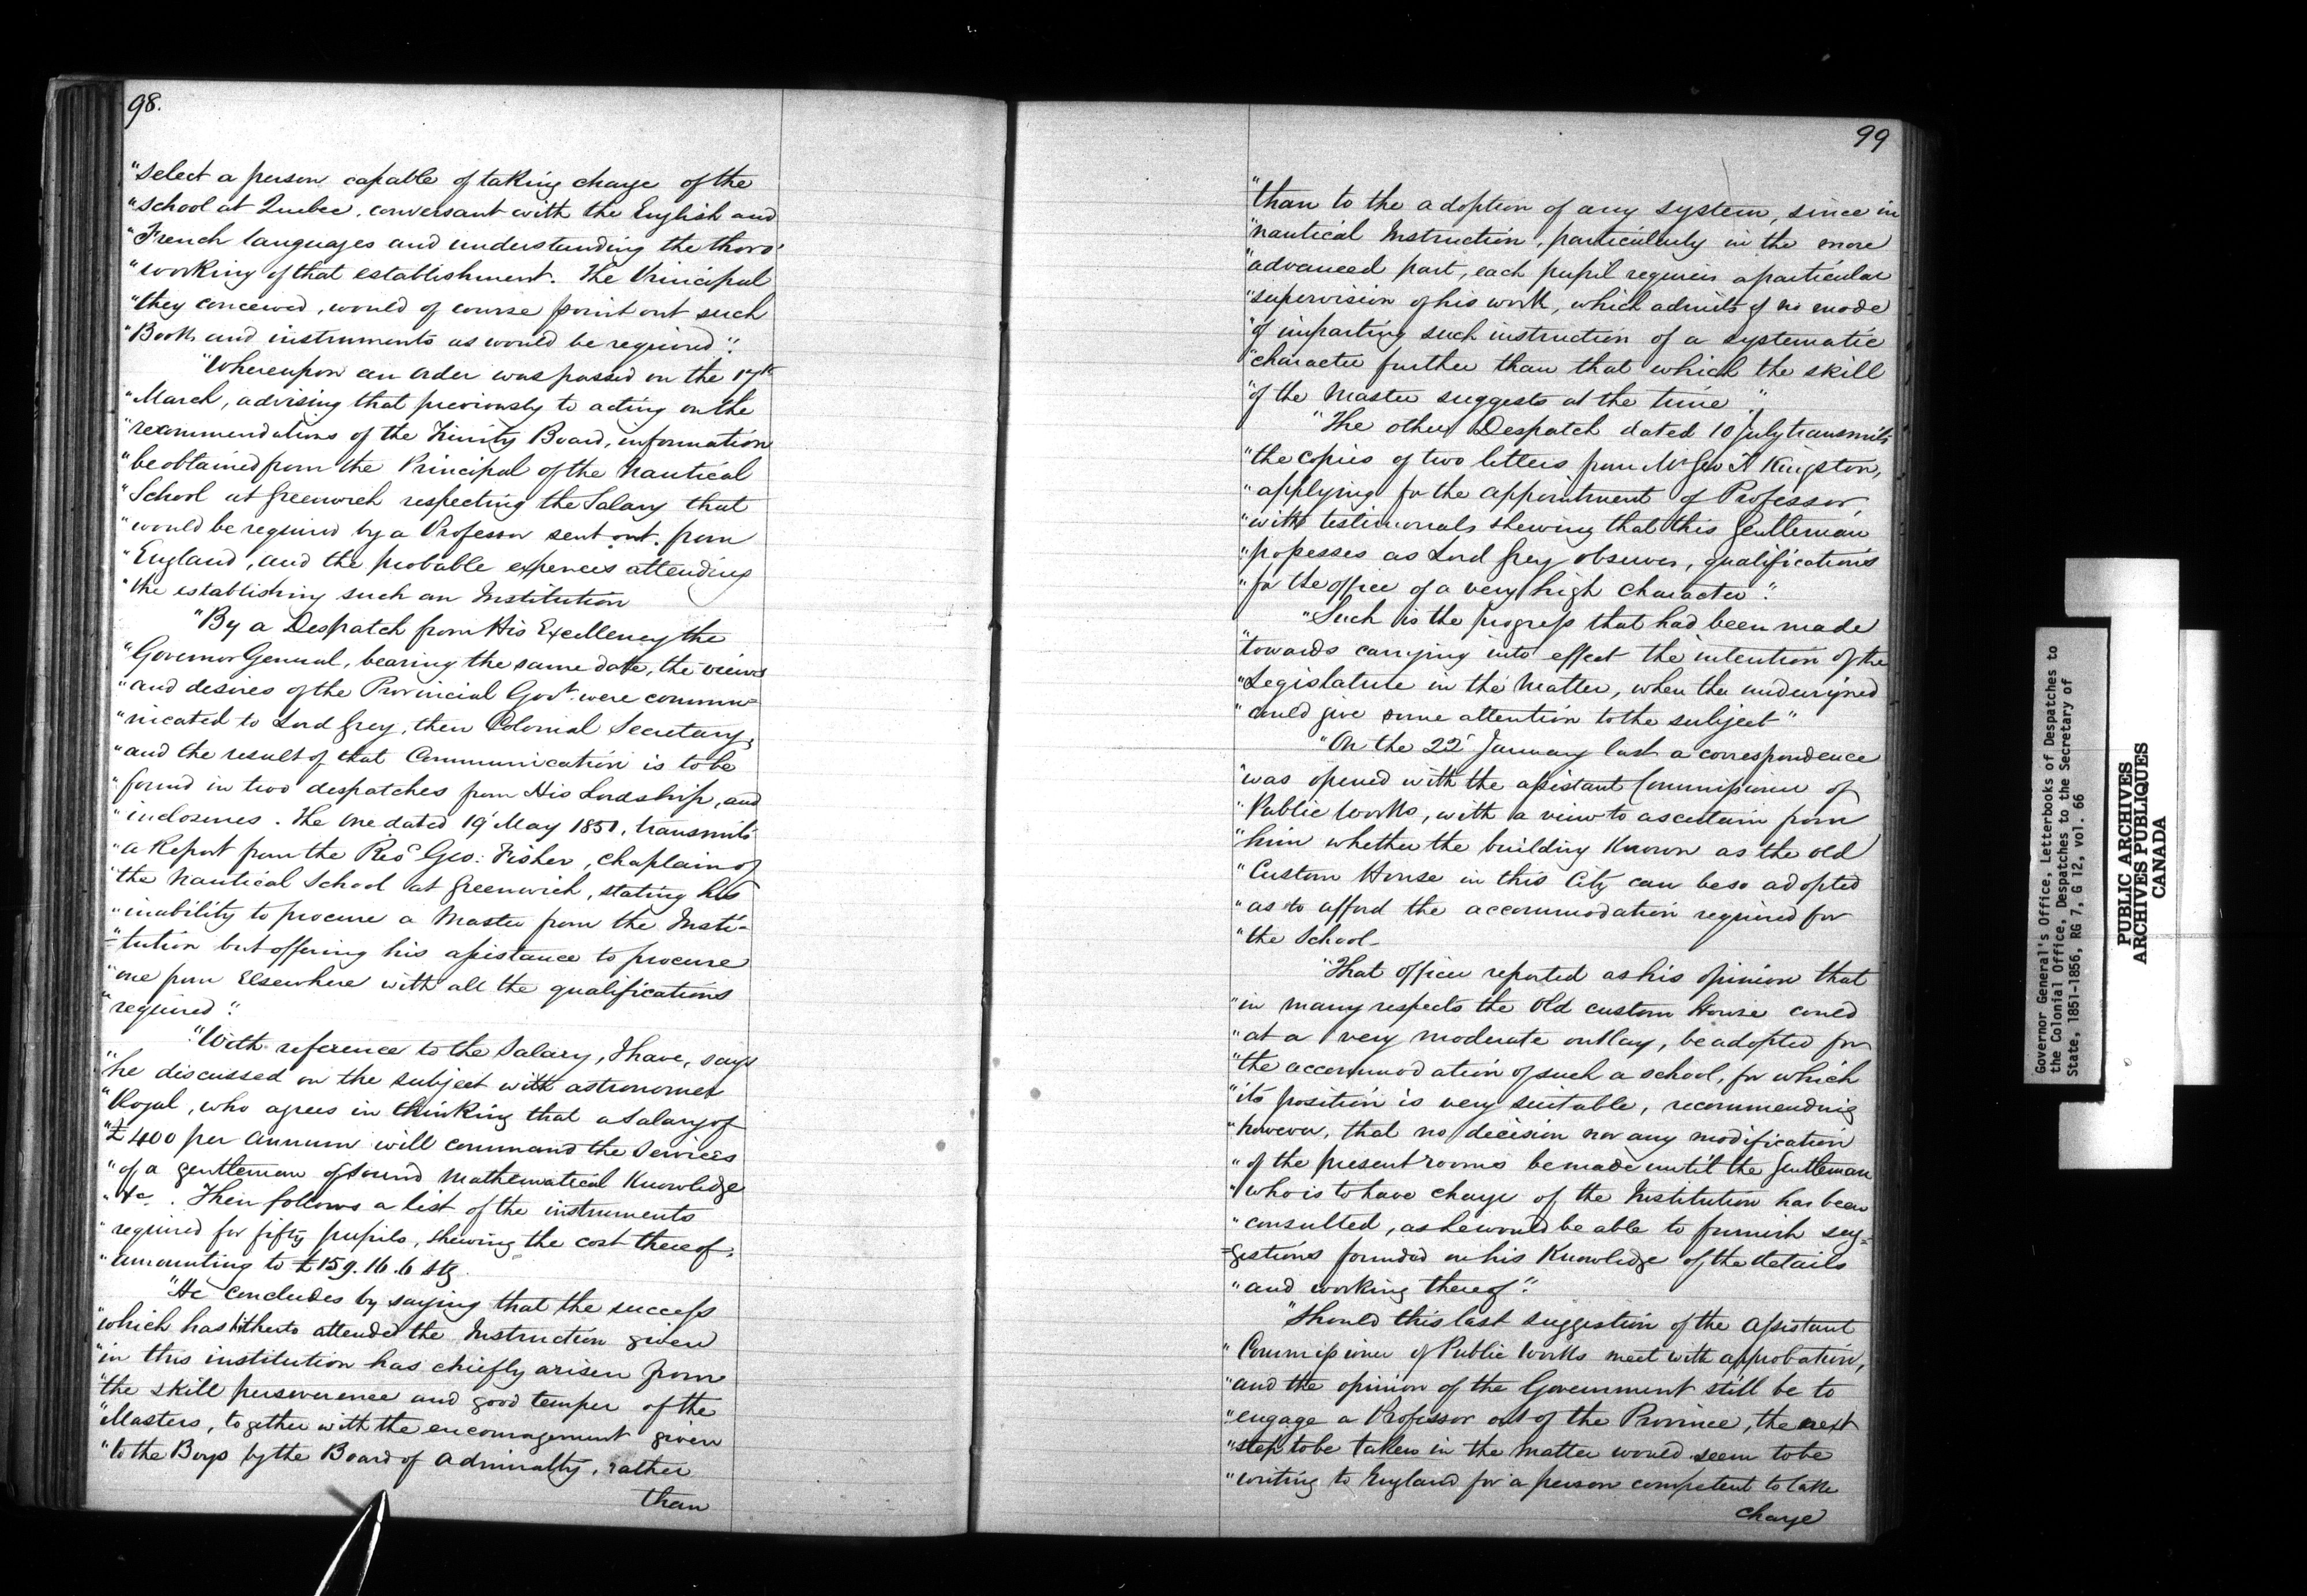 98.
"select a person capable of taking charge of the
"school at Quebec, conversant with the English and
"French languages and understanding the thoro'
"working of that establishment. The Principal
"they conceived, would of course point out such
"Books and instruments as would be required".
"Whereupon an order was passed on the 17th
"March, advising that previously to acting on the
"recommendations of the Trinity Board, information
"be obtained from the Principal of the Nautical
"School at Greenwich respecting the Salary that
"would be required by a Professor sent out from
"England, and the probable expences attending
"the establishing such an Institution
"By a Despatch from His Excellency the
"Governor General, bearing the same date, the views
"and desires of the Provincial Govt. were commu=
"nicated to Lord Grey, then Colonial Secretary,
"and the result of that Communication is to be
"found in two despatches from His Lordship, and
"inclosures. The one dated 19 May 1851, transmits
"a Report from the Revd Geo: Fisher, Chaplain of
"the Nautical School at Greenwich, stating his
"inability to procure a Master from the Insti-
"tution but offering his assistance to procure
"one from Elsewhere with all the qualifications
"required".
"With reference to the Salary, I have, says
"he discussed on the subject with astronomer
"Royal, who agrees in thinking that a Salary of
"£400 per Annum will command the Services
"of a gentleman of sound Mathematical Knowledge
"&c. Then follows a list of the instruments
"required for fifty pupils, shewing the cost thereof,
"amounting to £159.16.6 stg.
"He concludes by saying that the success
"which has hitherto attended the Instruction given
"in this institution has chiefly arisen from
"the skill perseverence and good temper of the
"Masters, together with the encouragement given
"to the Boys by the Board of Admiralty, rather
than
99
"than to the adoption of any system, since in
"nautical Instruction, particularly in the more
"advanced part, each pupil requires a particular
"supervision of his work, which admits of no mode
"of imparting such instruction of a systematic
"character further than that which the skill
"of the Master suggests at the time".
"The other Despatch dated 10 July transmits
"the copies of two letters from Mr Geo T Kingston,
"applying for the appointment of Professor,
"with testimonials shewing that this Gentleman
"possesses as Lord Grey observes, qualifications
"for the office of a very high Character".
"Such is the progress that had been made
"towards carrying into effect the intention of the
"Legislature in the Matter, when the undersigned
"could give some attention to the subject"
"On the 22d January last a correspondence
"was opened with the assistant Commissioner of
"Public Works, with a view to ascertain from
"him whether the building Known as the old
"Custom House in this City can be so adopted
"as to afford the accommodation required for
"the School-
"That officer reported as his opinion that
"in many respects the Old custom House could
"at a very moderate outlay, be adopted for
"the accommodation of such a school, for which
"its position is very suitable, recommending
"however, that no decision nor any modification
"of the present rooms be made until the Gentleman
"who is to have charge of the Institution has been
"consulted, as he would be able to furnish sug=
=gestions founded on his Knowledge of the details
"and working thereof".
"Should this last suggestion of the Assistant
"Commissioner of Public Works meet with approbation,
"and the opinion of the Government still be to
"engage a Professor out of the Province, the next
"step to be taken in the Matter would seem to be
"writing to England for a person competent to take
charge
Governor General's Office, Letterbooks of Despatches to
the Colonial Office, Despatches to the Secretary of
State, 1851-1856, RG 7, G 12, vol. 66
PUBLIC ARCHIVES
ARCHIVES PUBLIQUES
CANADA